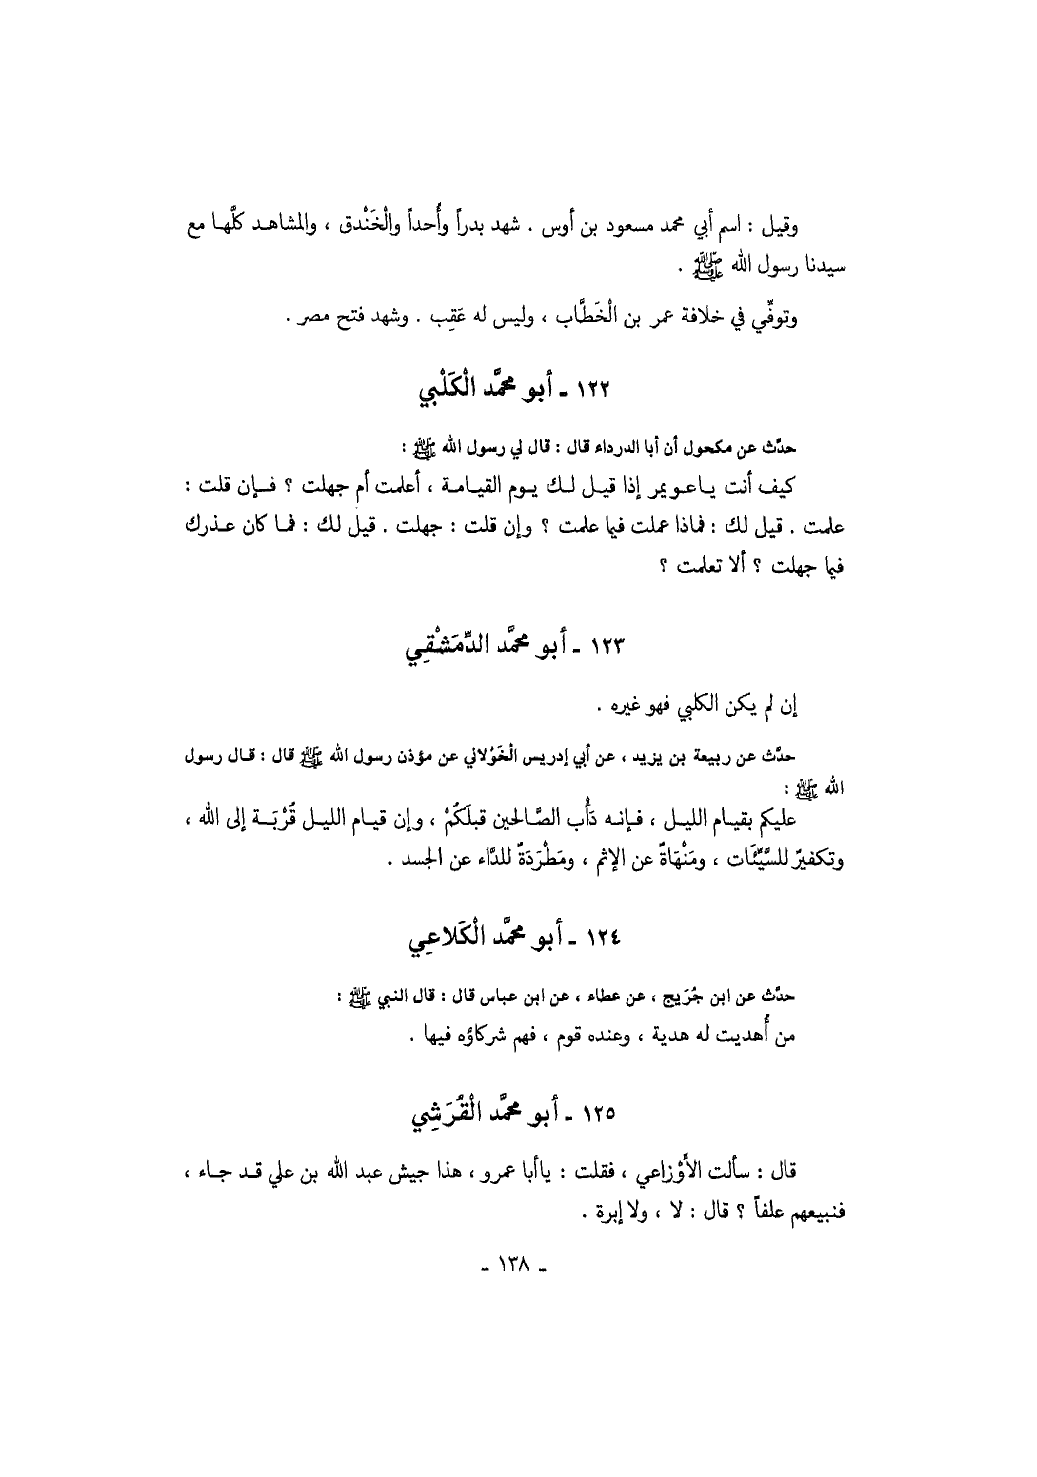 وقيل : اسم أبي محمد مسعود بن أوس . شهد بدراً وأُحداً والْخَنْدق ، والمشاهد كلَّها مع
سيدنا رسول الله ﷺ .
وتوفِّي في خلافة عمر بن الْخَطَّاب ، وليس له عَقِب . وشهد فتح مصر .
١٢٢ ـ أبو محمَّد الْكَلْبي
حدَّث عن مكحول أن أبا الدرداء قال : قال لي رسول الله ﷺ :
كيف أنت ياعويمر إذا قيل لك يوم القيامة ، أعلمت أم جهلت ؟ فإن قلت :
علمت . قيل لك : فماذا عملت فيما علمت ؟ وإن قلت : جهلت . قيل لك : فما كان عذرك
فيما جهلت ؟ ألا تعلمت ؟
١٢٣ ـ أبو محمَّد الدِّمَشْقِي
إن لم يكن الكلبي فهو غيره .
حدَّث عن ربيعة بن يزيد ، عن أبي إدريس الْخَوْلاني عن مؤذن رسول الله ﷺ قال : قال رسول
الله ﷺ :
عليكم بقيام الليل ، فإنه دَأْب الصَّالحين قبلَكُمْ ، وإن قيام الليل قُرْبَة إلى الله ،
وتكفيرٌ للسَّيِّئَات ، ومَنْهَاةٌ عن الإثم ، ومَطْرَدَةٌ للدَّاء عن الجسد .
١٢٤ ـ أبو محمَّد الْكَلاعِي
حدَّث عن ابن جُرَيج ، عن عطاء ، عن ابن عباس قال : قال النبي ﷺ :
من أُهديت له هدية ، وعنده قوم ، فهم شركاؤه فيها .
١٢٥ ـ أبو محمَّد الْقُرَشِي
قال : سألت الأَوْزاعي ، فقلت : ياأبا عمرو ، هذا جيش عبد الله بن علي قد جاء ،
فنبيعهم علفاً ؟ قال : لا ، ولا إبرة .
ـ ١٣٨ ـ